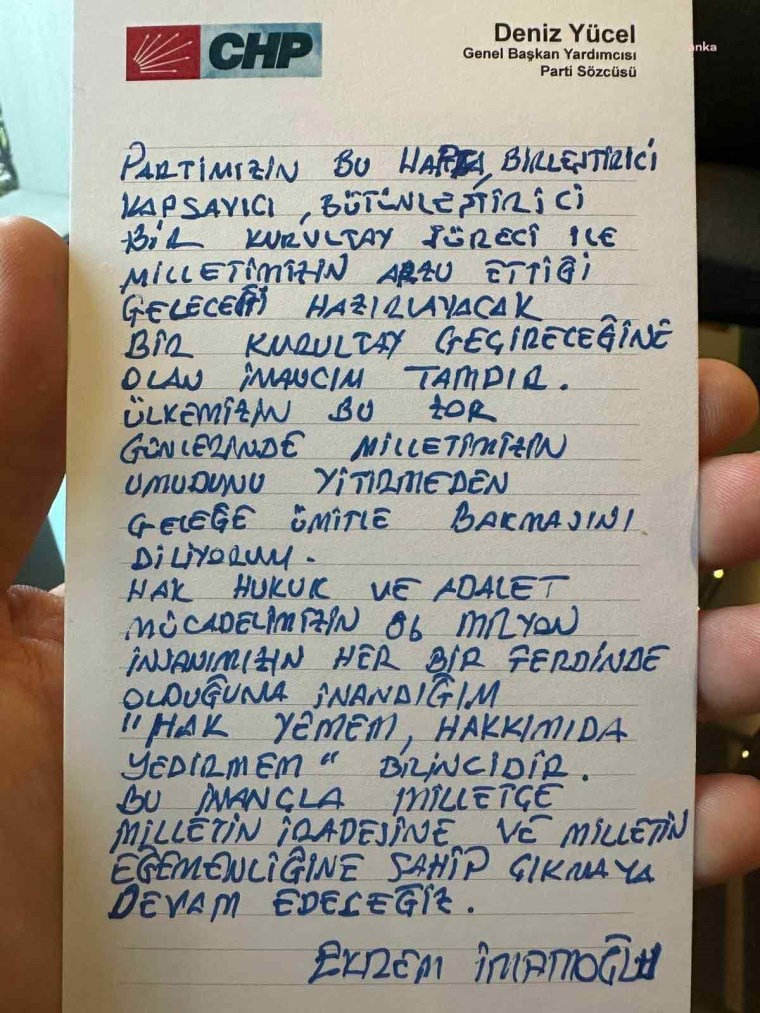 CHP
Deniz Yücel
Genel Başkan Yardımcısı
Parti Sözcüsü
anka
PARTİMİZİN BU HAFTA, BİRLEŞTİRİCİ
KAPSAYICI, BÜTÜNLEŞTİRİCİ
BİR KURULTAY SÜRECİ İLE
MİLLETİMİZİN ARZU ETTİĞİ
GELECEĞİ HAZIRLAYACAK
BİR KURULTAY GEÇİRECEĞİNE
OLAN İNANCIM TAMDIR.
ÜLKEMİZİN BU ZOR
GÜNLERİNDE MİLLETİMİZİN
UMUDUNU YİTİRMEDEN
GELEĞE ÜMİTLE BAKMASINI
DİLİYORUM.
HAK HUKUK VE ADALET
MÜCADELİMİZİN 86 MİLYON
İNSANIMIZIN HER BİR FERDİNDE
OLDUĞUNA İNANDIĞIM
"HAK YEMEM, HAKKIMIDA
YEDİRMEM" BİLİNCİDİR.
BU İNANÇLA MİLLETÇE
MİLLETİN İRADESİNE VE MİLLETİN
EGEMENLİĞİNE SAHİP ÇIKMAYA
DEVAM EDECEĞİZ.
EKREM İMAMOĞLU